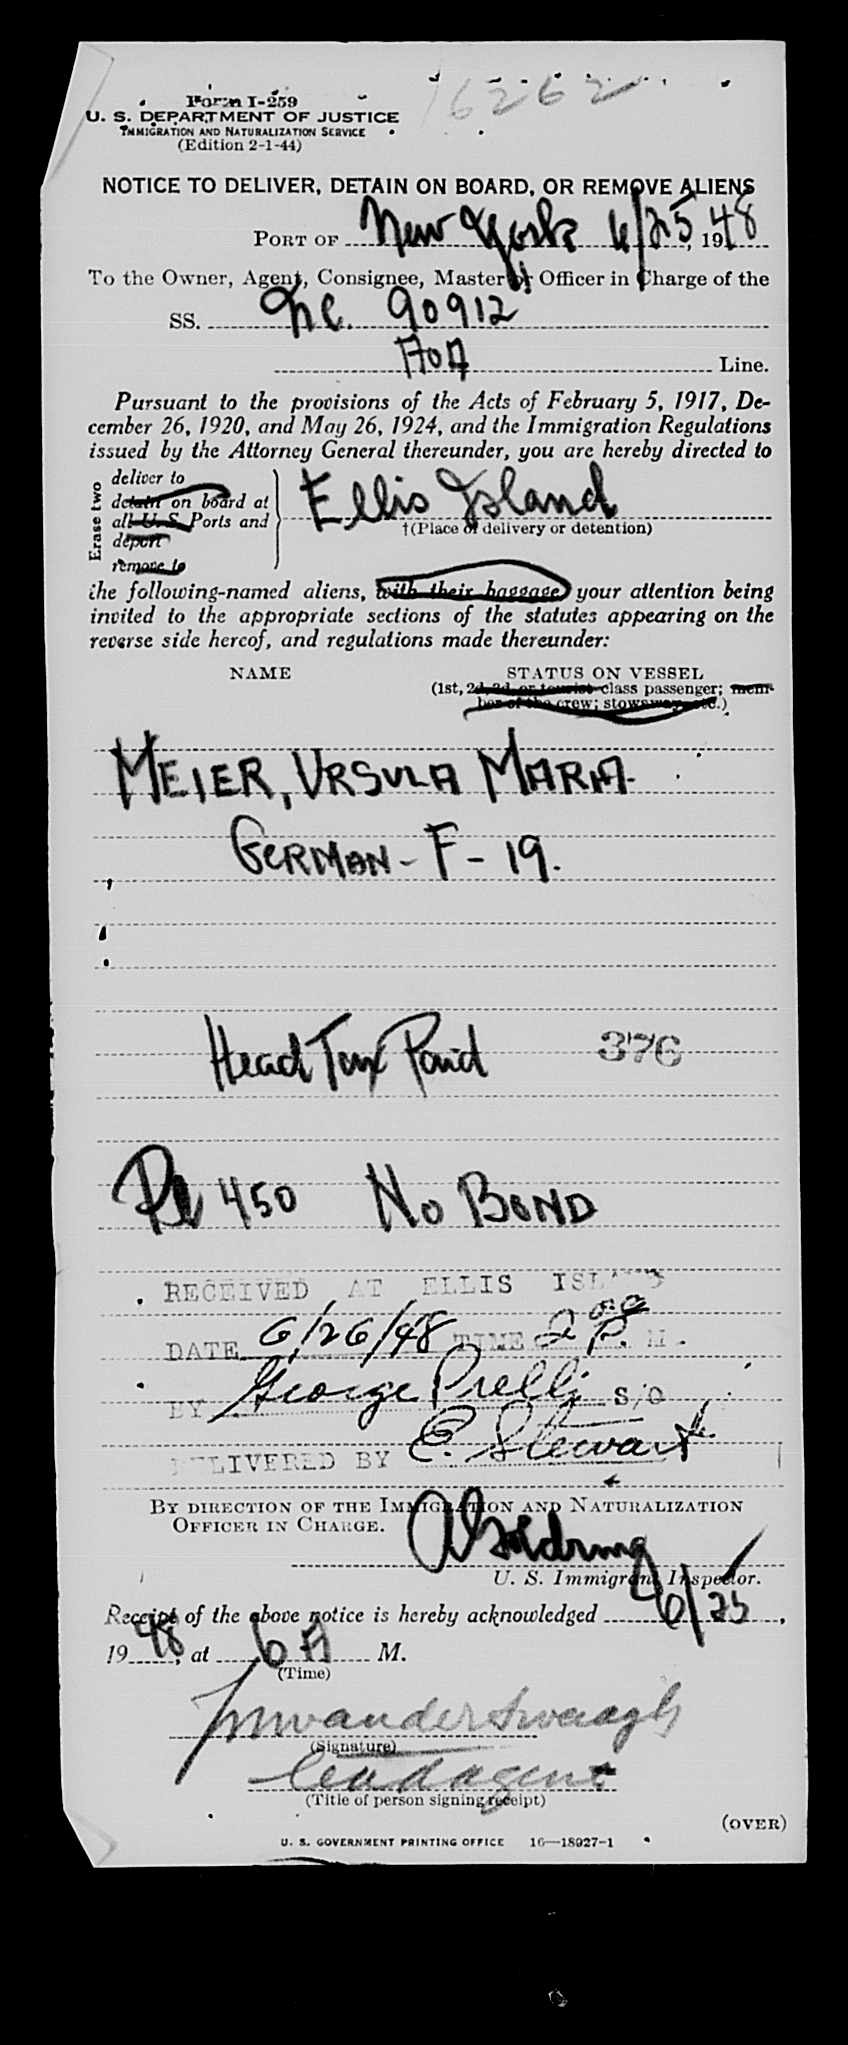 16262
Form I-259
U. S. DEPARTMENT OF JUSTICE
IMMIGRATION AND NATURALIZATION SERVICE
(Edition 2-1-44)
NOTICE TO DELIVER, DETAIN ON BOARD, OR REMOVE ALIENS
PORT OF New York 6/25, 1948
To the Owner, Agent, Consignee, Master or Officer in Charge of the
SS. NC. 90912
AOA Line.
Pursuant to the provisions of the Acts of February 5, 1917, De-
cember 26, 1920, and May 26, 1924, and the Immigration Regulations
issued by the Attorney General thereunder, you are hereby directed to
Erase two
deliver to
detain on board at
all U. S. Ports and
deport
remove to
Ellis Island
†(Place of delivery or detention)
the following-named aliens, with their baggage, your attention being
invited to the appropriate sections of the statutes appearing on the
reverse side hereof, and regulations made thereunder:
NAME STATUS ON VESSEL
(1st, 2d, 3d, or tourist class passenger; mem-
ber of the crew; stowaway, etc.)
MEIER, URSULA MARIA
GERMAN - F - 19.
Head Tax Paid 376
450 No BOND
RECEIVED AT ELLIS ISLAND
DATE 6/26/48 TIME 2 00 P. M.
BY George Prelli S/O
DELIVERED BY E. Stewart
BY DIRECTION OF THE IMMIGRATION AND NATURALIZATION
OFFICER IN CHARGE.
U. S. Immigrant Inspector.
Receipt of the above notice is hereby acknowledged 6/25,
1948, at 6 A M.
(Time)
(Signature)
agent
(Title of person signing receipt)
(OVER)
U. S. GOVERNMENT PRINTING OFFICE 16—18927-1